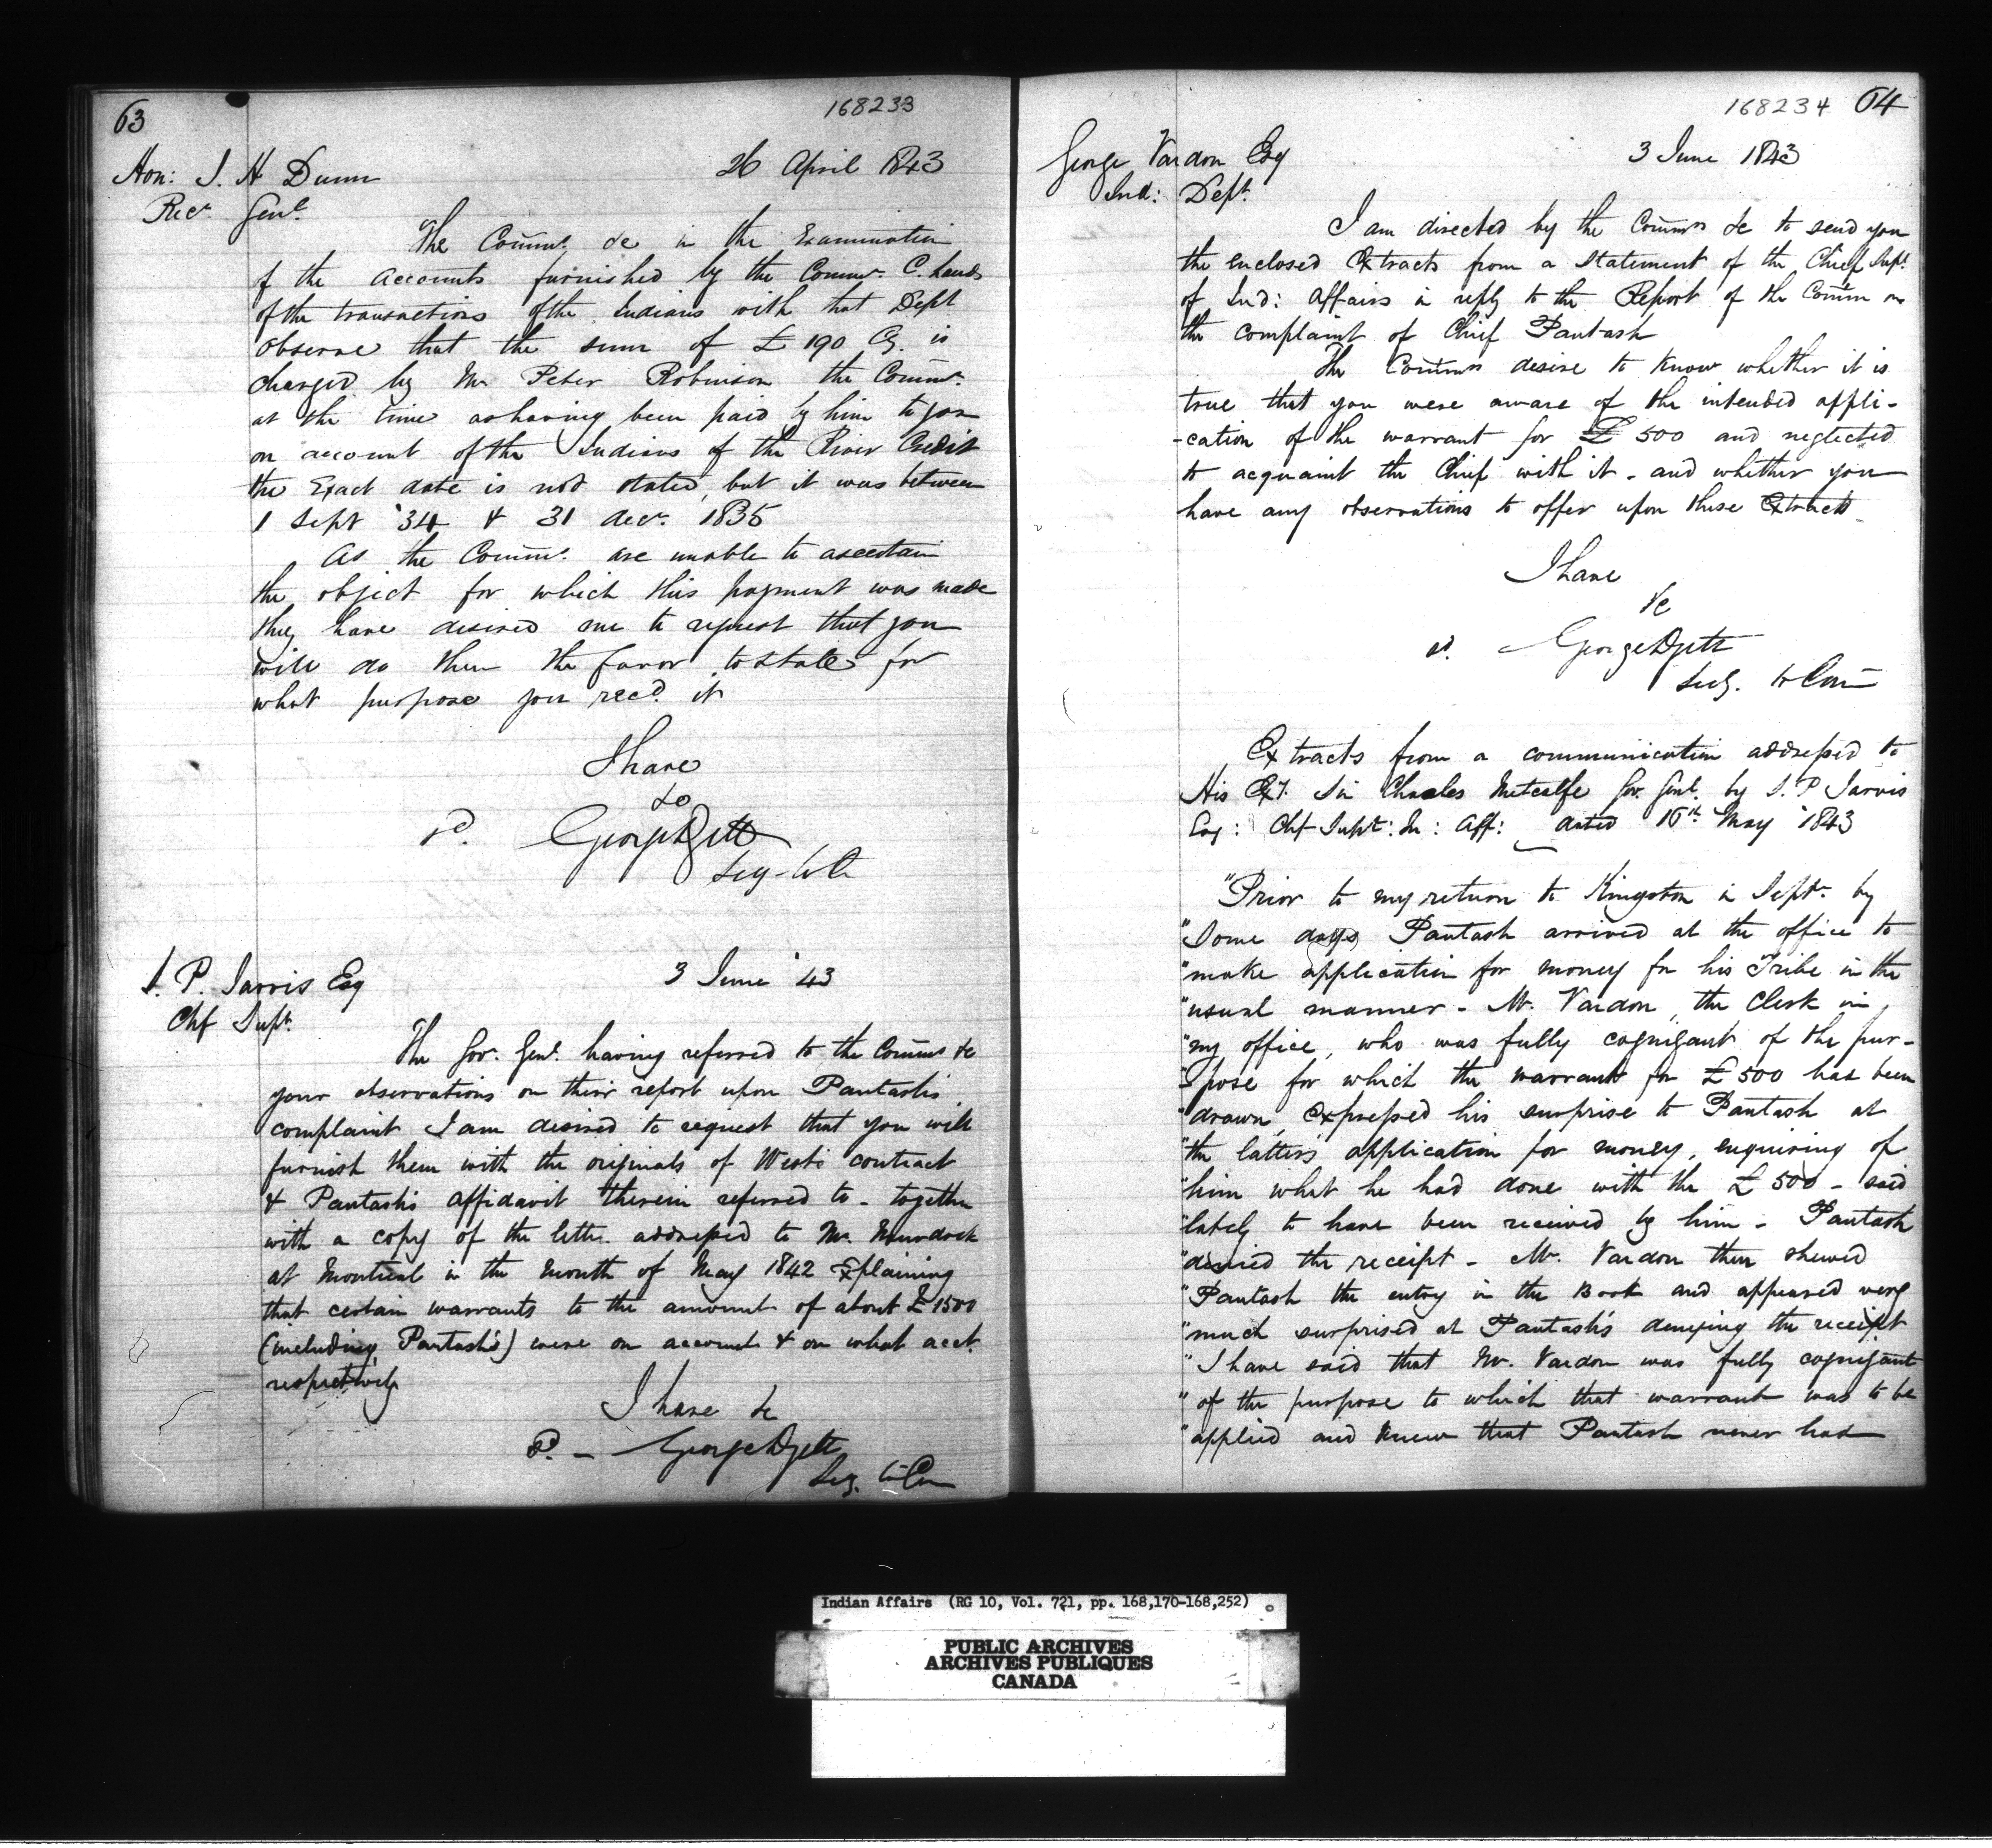 63
168233
Hon: J. H Dunn
26 April 1843
Recr Genl.
The Commrs. &c in the Examination
of the Accounts furnished by the Commr. C. Lands
of the transactions of the Indians with that Dept
observe that the sum of £ 190 Cy. is
charged by Mr Peter Robinson the Commr.
at the time as having been paid by him to you
on account of the Indians of the River Credit
the Exact date is not stated, but it was between
1 Sept '34 & 31 decr. 1835
As the Commrs. are unable to ascertain
the object for which this payment was made
they have desired me to request that you
will do them the favor to state for
what purpose you recd. it
I have
&c
sd. George Dyett
Secy. to C
S. P. Jarvis Esq
3 June '43
Chf Supt.
The Gov. Genl. having referred to the Commrs &c
your observations on their report upon Pautash's
complaint I am desired to request that you will
furnish them with the originals of West's contract
& Pautash's affidavit therein referred to - together
with a copy of the letter addressed to Mr. Murdock
at Montreal in the month of May 1842 Explaining
that certain warrants to the amount of about £ 1500
(including Pautash's) were on account & on what acct.
respectively
I have &c
sd. - George Dyett
Secy. to Com
168234 64
George Vardon Esq
3 June 1843
Ind: Dept.
I am directed by the Commrs &c to send you
the enclosed Extracts from a statement of the Chief Supt.
of Ind: Affairs in reply to the Report of the Comm on
the complaint of Chief Pautash
The Commrs desire to know whether it is
true that you were aware of the intended appli-
-cation of the warrant for £ 500 and neglected
to acquaint the Chief with it - and whether you
have any observations to offer upon these Extracts
I have
&c
sd. George Dyett
Secy. to Com
Extracts from a communication addressed to
His Ex. Sir Charles Metcalfe Gov. Genl. by S. P Jarvis
Esq: Chf Supt: In: Aff: dated 16th May 1843
"Prior to my return to Kingston in Septr. by
"Some days Pautash arrived at the office to
"make application for money for his Tribe in the
"usual manner - Mr. Vardon, the Clerk in
"my office, who was fully cognizant of the pur-
"-pose for which the warrant for £ 500 had been
"drawn, Expressed his surprise to Pautash at
"the latter's application for money, enquiring of
"him what he had done with the £ 500 - said
"lately to have been received by him - Pautash
"denied the receipt - Mr. Vardon then shewed
"Pautash the entry in the Book and appeared very
"much surprised at Pautash's denying the receipt
"I have said that Mr. Vardon was fully cognizant
"of the purpose to which that warrant was to be
"applied and knew that Pautash never had
Indian Affairs (RG 10, Vol. 721, pp. 168,170-168,252)
PUBLIC ARCHIVES
ARCHIVES PUBLIQUES
CANADA